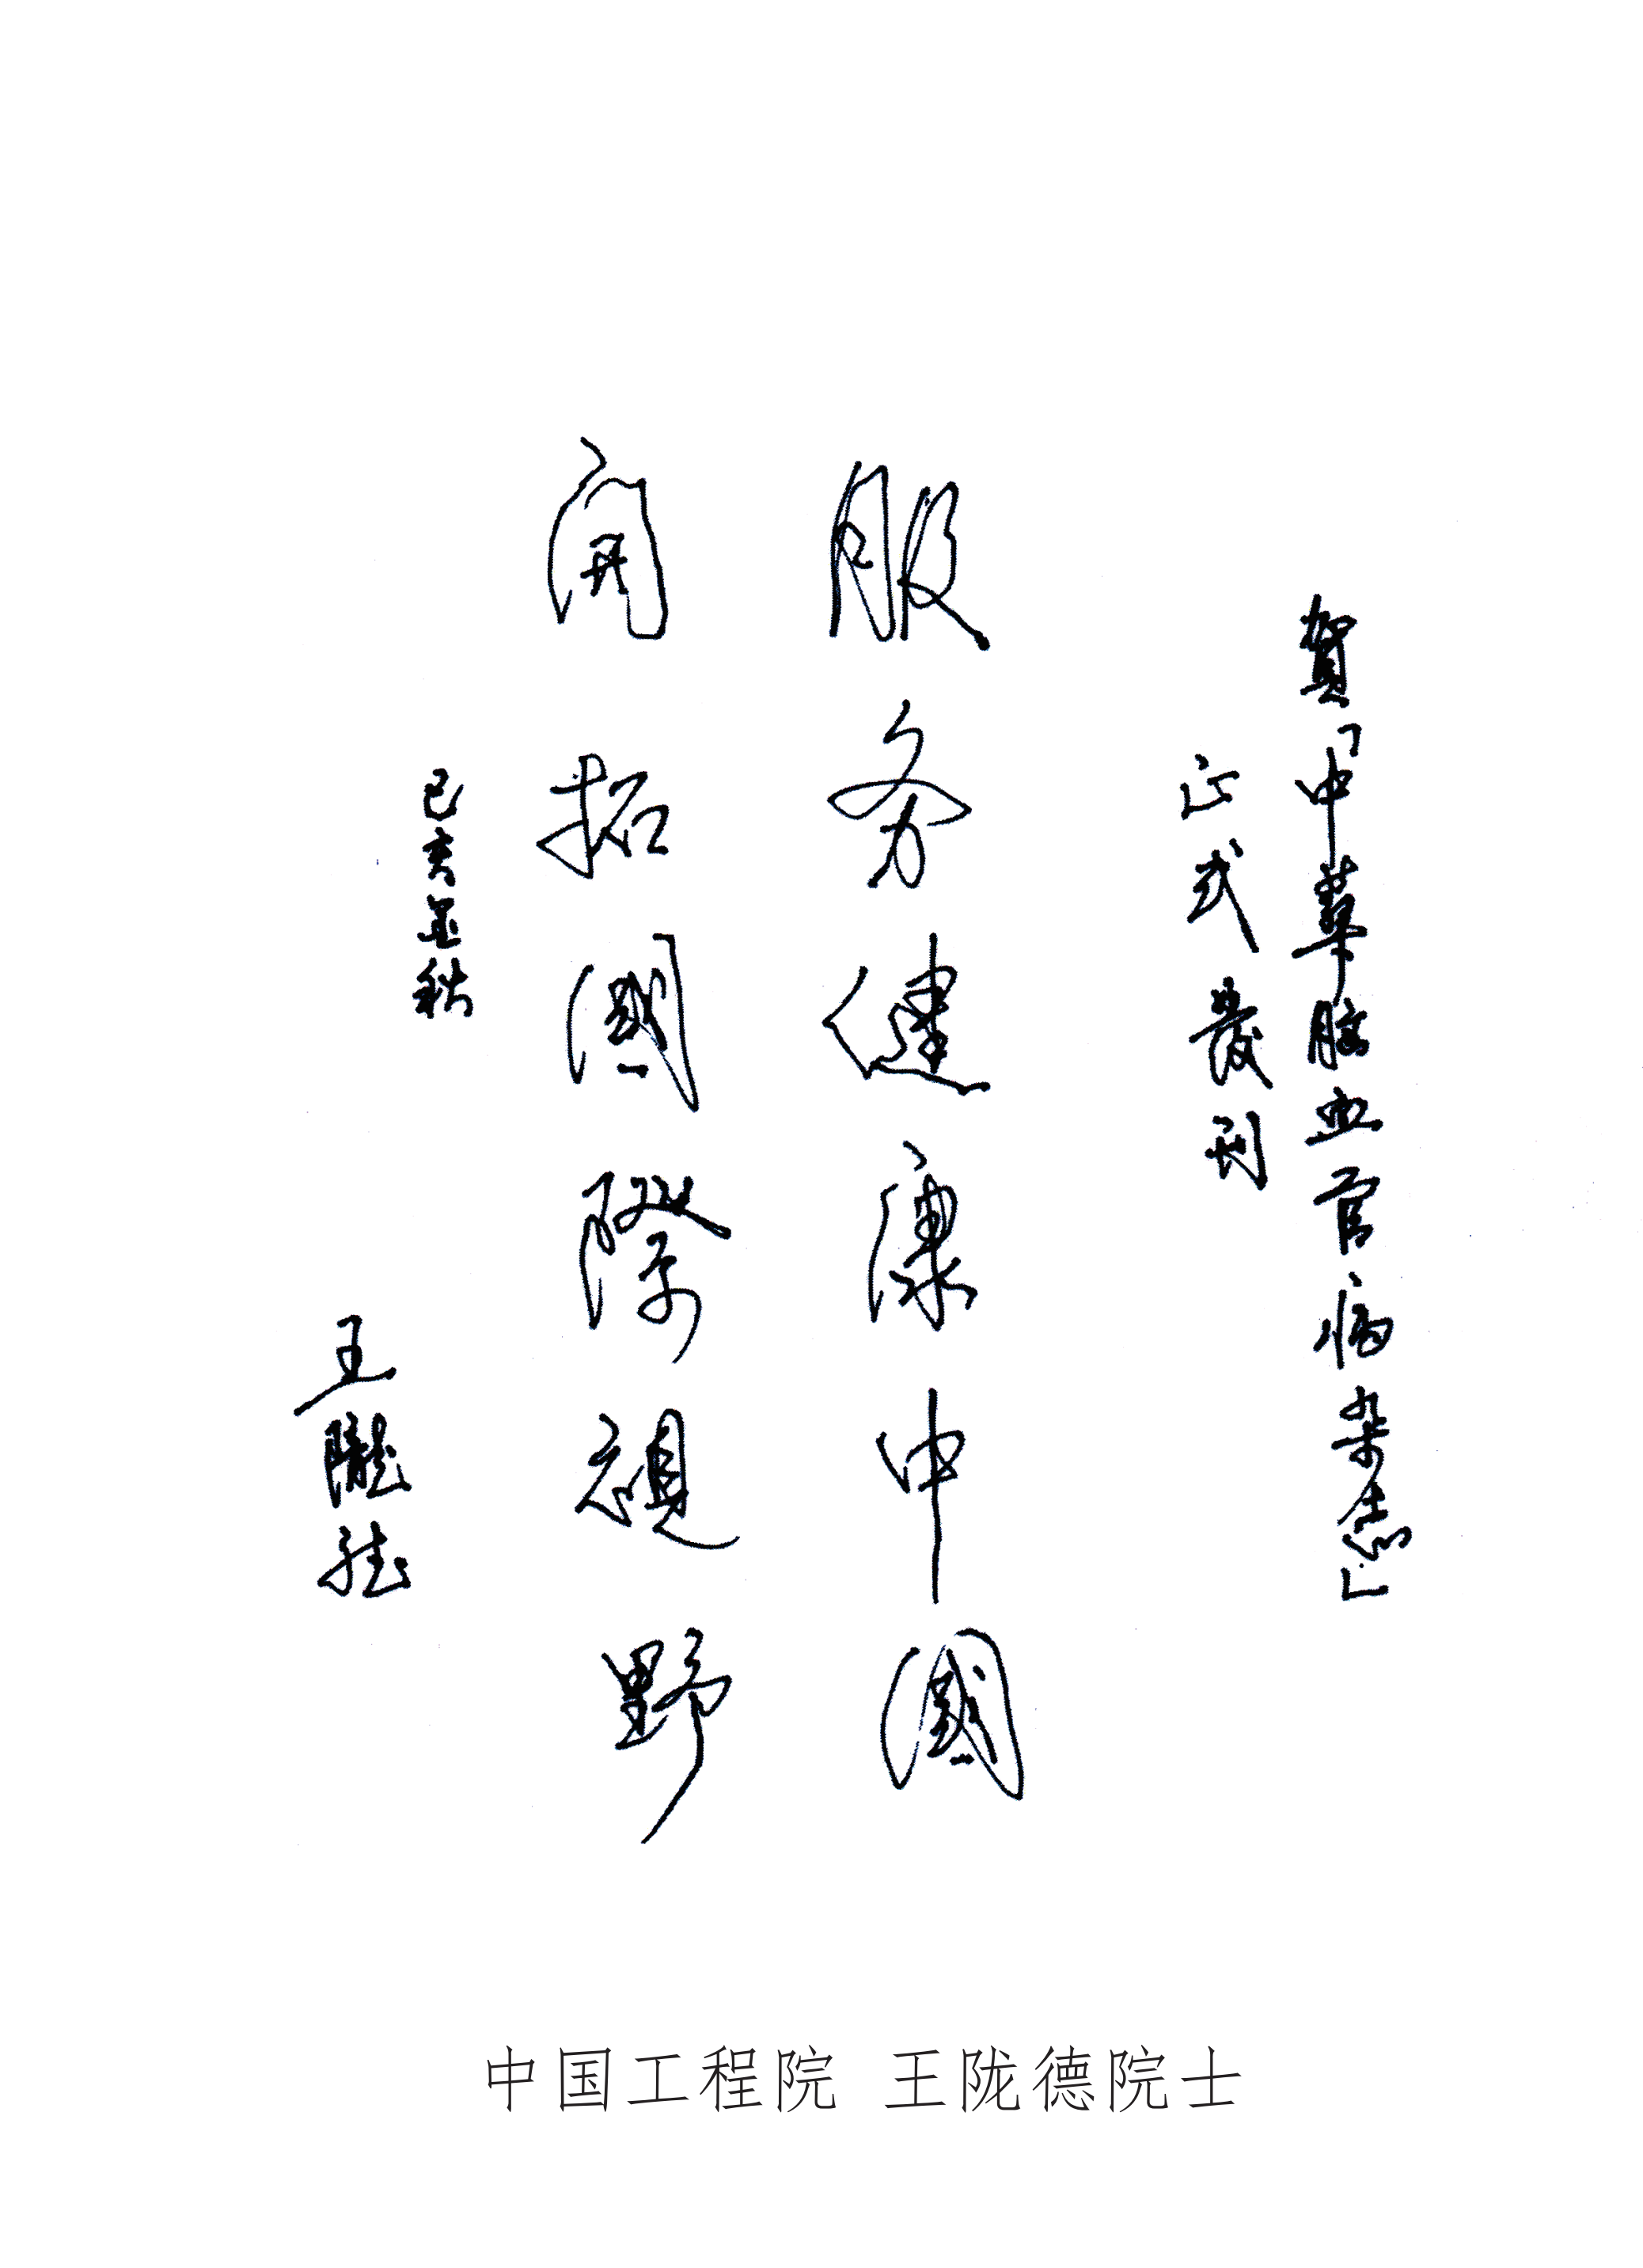 賀「中華腦血管病杂志」
正式發刊
服务健康中國
開拓國際視野
己亥金秋
王隴德
中国工程院 王陇德院士